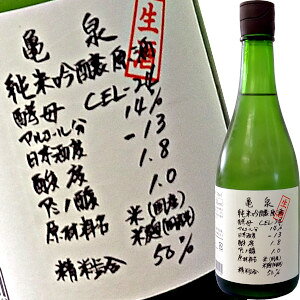 生酒
亀泉
純米吟醸原酒
酵母 CEL-24
アルコール分 14%
日本酒度 -13
酸度 1.8
アミノ酸 1.0
原材料名 米(国産)
米麹(国産米)
精米歩合 50%
生酒
亀泉
純米吟醸原酒
酵母 CEL-24
アルコール分 14%
日本酒度 -13
酸度 1.8
アミノ酸 1.0
原材料名 米(国産)
米麹(国産米)
精米歩合 50%